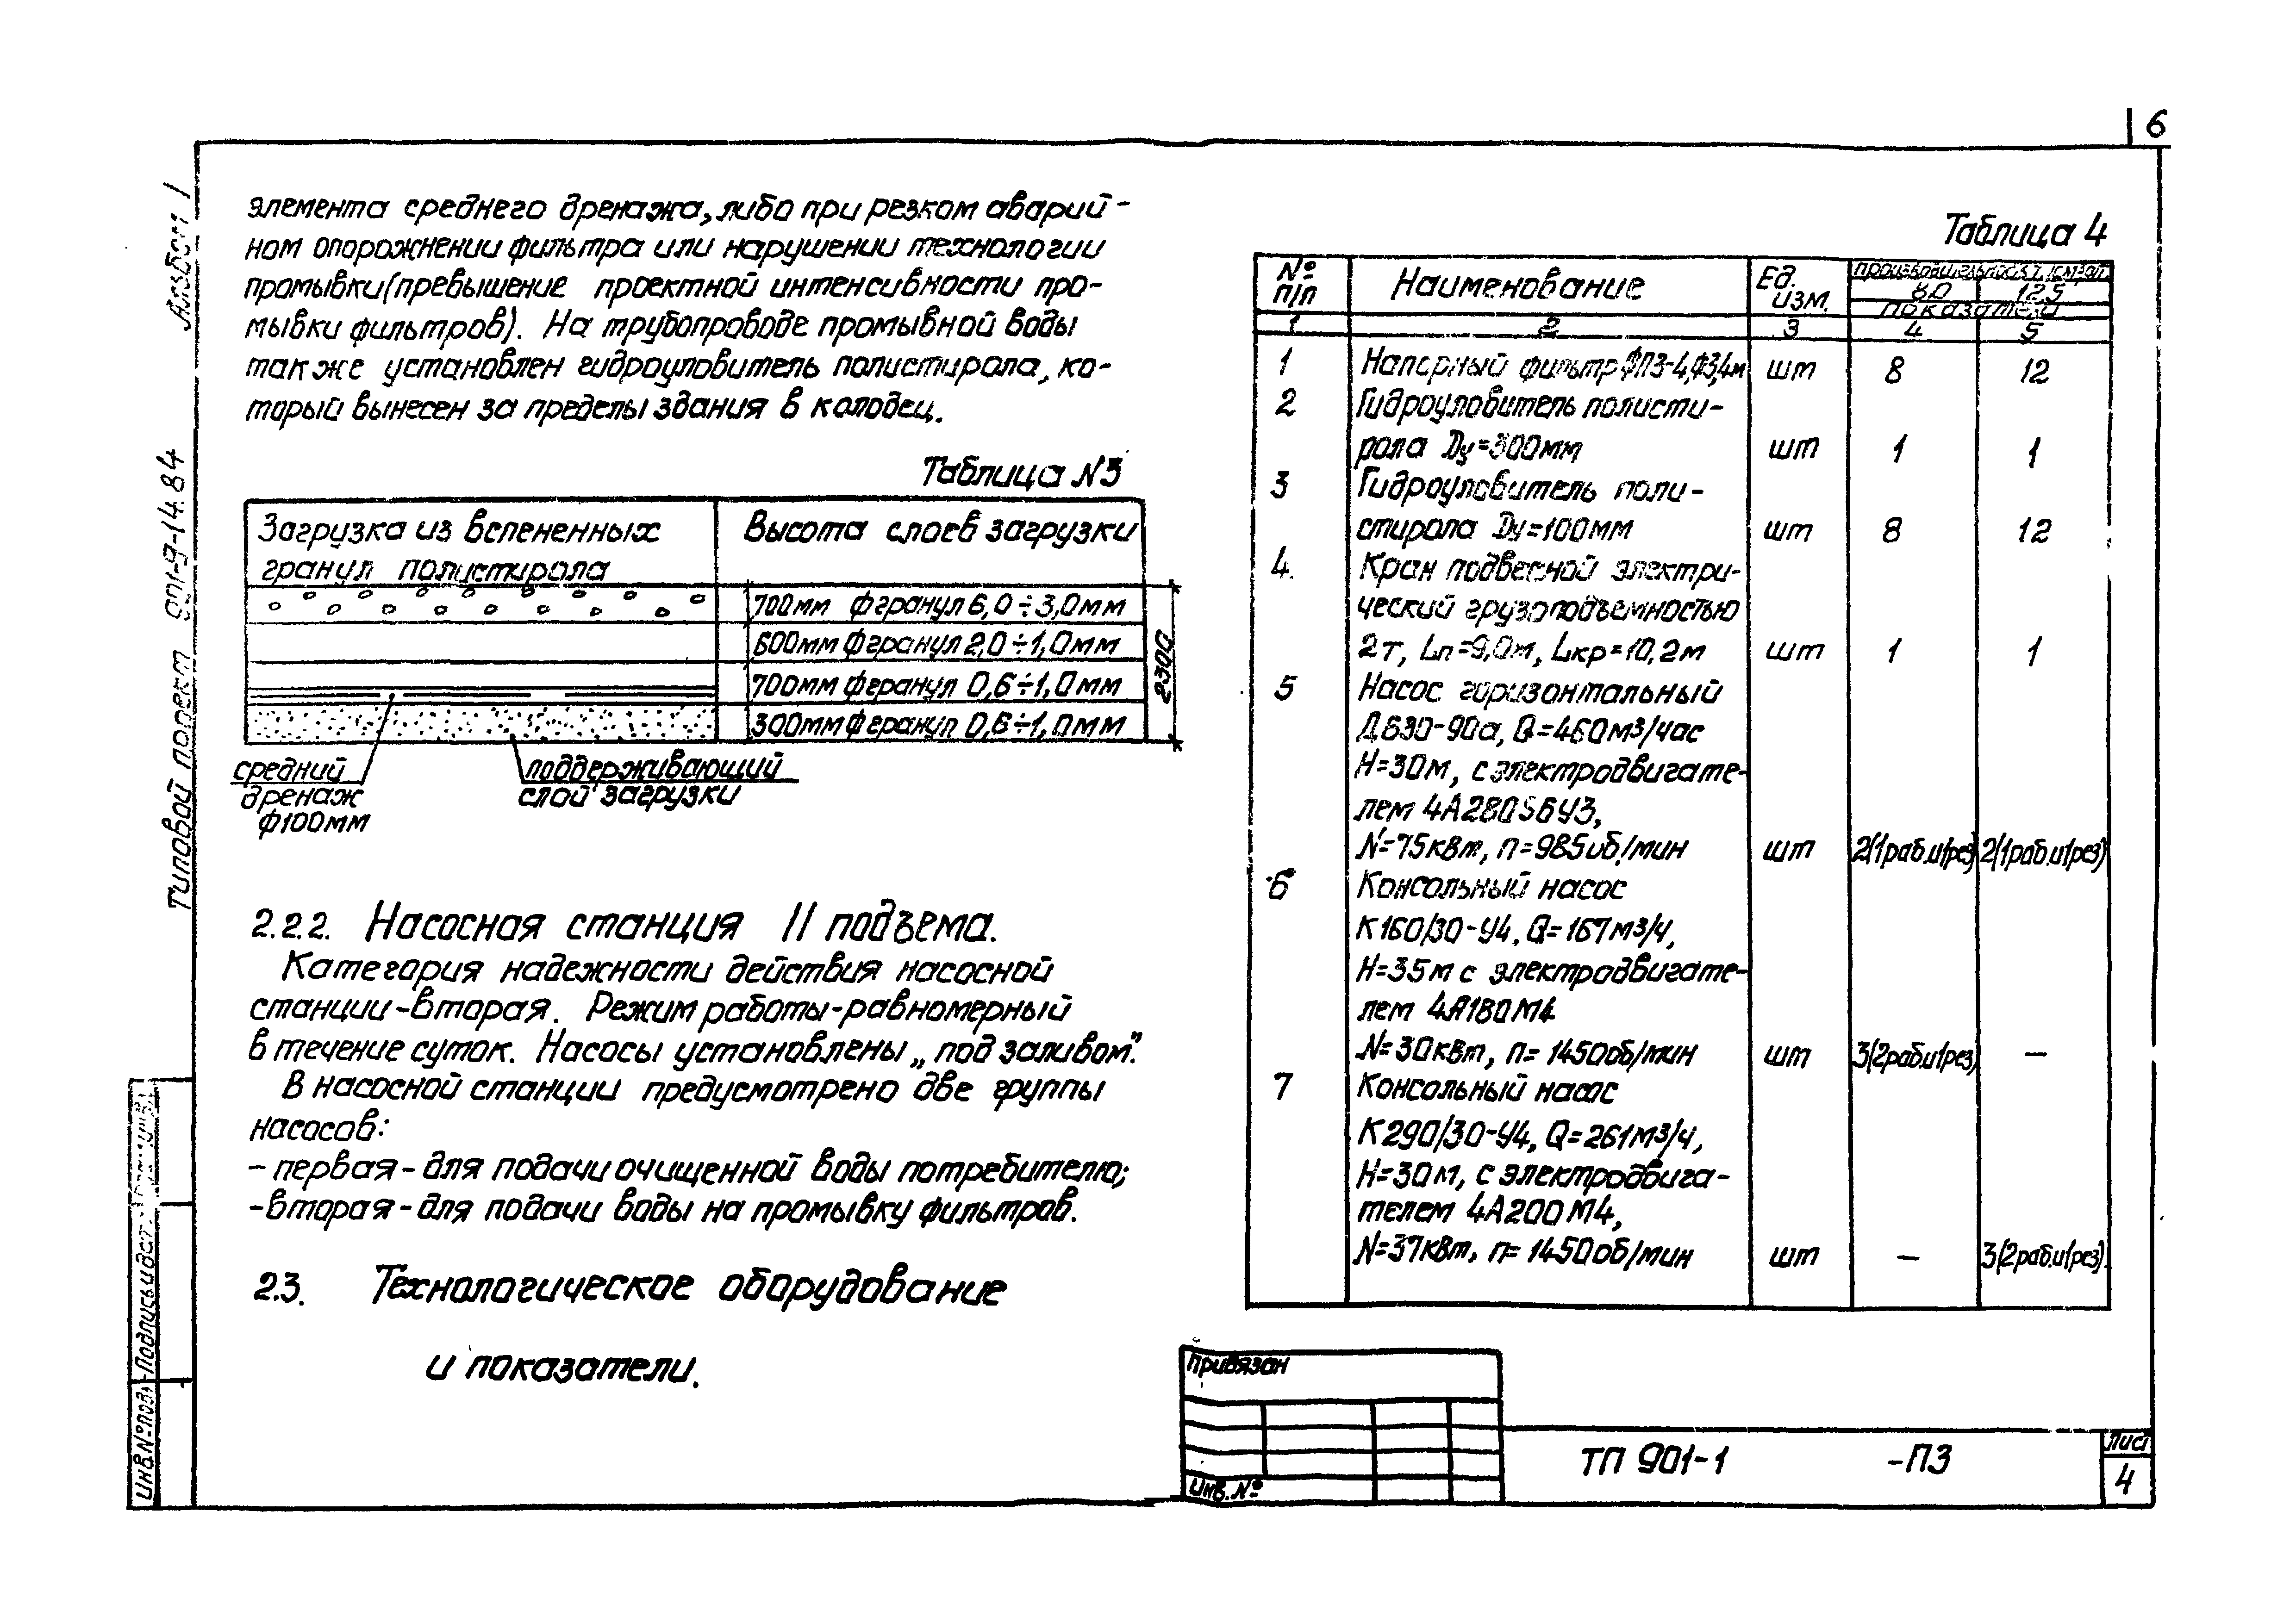 6
Альбом 1
Типовой проект 901-9-14.84
элемента среднего дренажа, либо при резком аварий-
ном опорожнении фильтра или нарушении технологии
промывки (превышение проектной интенсивности про-
мывки фильтров). На трубопроводе промывной воды
также установлен гидроуловитель полистирола, ко-
торый вынесен за пределы здания в колодец.
Таблица N3
Загрузка из вспененных
гранул полистирола
Высота слоев загрузки
700мм ф гранул 6,0÷3,0мм
600мм ф гранул 2,0÷1,0мм
700мм ф гранул 0,6÷1,0мм
300мм ф гранул 0,6÷1,0мм
2300
средний
дренаж
ф100мм
поддерживающий
слой загрузки
2.2.2. Насосная станция II подъема.
Категория надежности действия насосной
станции-вторая. Режим работы-равномерный
в течение суток. Насосы установлены „под заливом".
В насосной станции предусмотрено две группы
насосов:
- первая - для подачи очищенной воды потребителю;
- вторая - для подачи воды на промывку фильтров.
2.3. Технологическое оборудование
и показатели.
Таблица 4
№ п/п Наименование Ед. изм. производительность т.м³/сут
8,0 12,5
показатели
1 2 3 4 5
1 Напорный фильтр ФПЗ-4, Ф3,4м шт 8 12
2 Гидроуловитель полисти-
рола Dу=300мм шт 1 1
3 Гидроуловитель поли-
стирола Dу=100мм шт 8 12
4. Кран подвесной электри-
ческий грузоподъемностью
2т, Lп=9,0м, Lкр=10,2м шт 1 1
5 Насос горизонтальный
Д630-90а, Q=460м³/час
H=30м, с электродвигате-
лем 4А280S6У3,
N=75квт, n=985об/мин шт 2(1раб.и1рез) 2(1раб.и1рез)
6 Консольный насос
К160/30-У4, Q=167м³/ч,
H=35м с электродвигате-
лем 4А180М4
N=30квт, n=1450об/мин шт 3(2раб.и1рез) —
7 Консольный насос
К290/30-У4, Q=261м³/ч,
H=30м, с электродвига-
телем 4А200М4,
N=37квт, n=1450об/мин шт — 3(2раб.и1рез)
Привязан
Инв.№
ТП 901-1 -ПЗ
Лист
4
Инв.№ подл. Подпись и дата